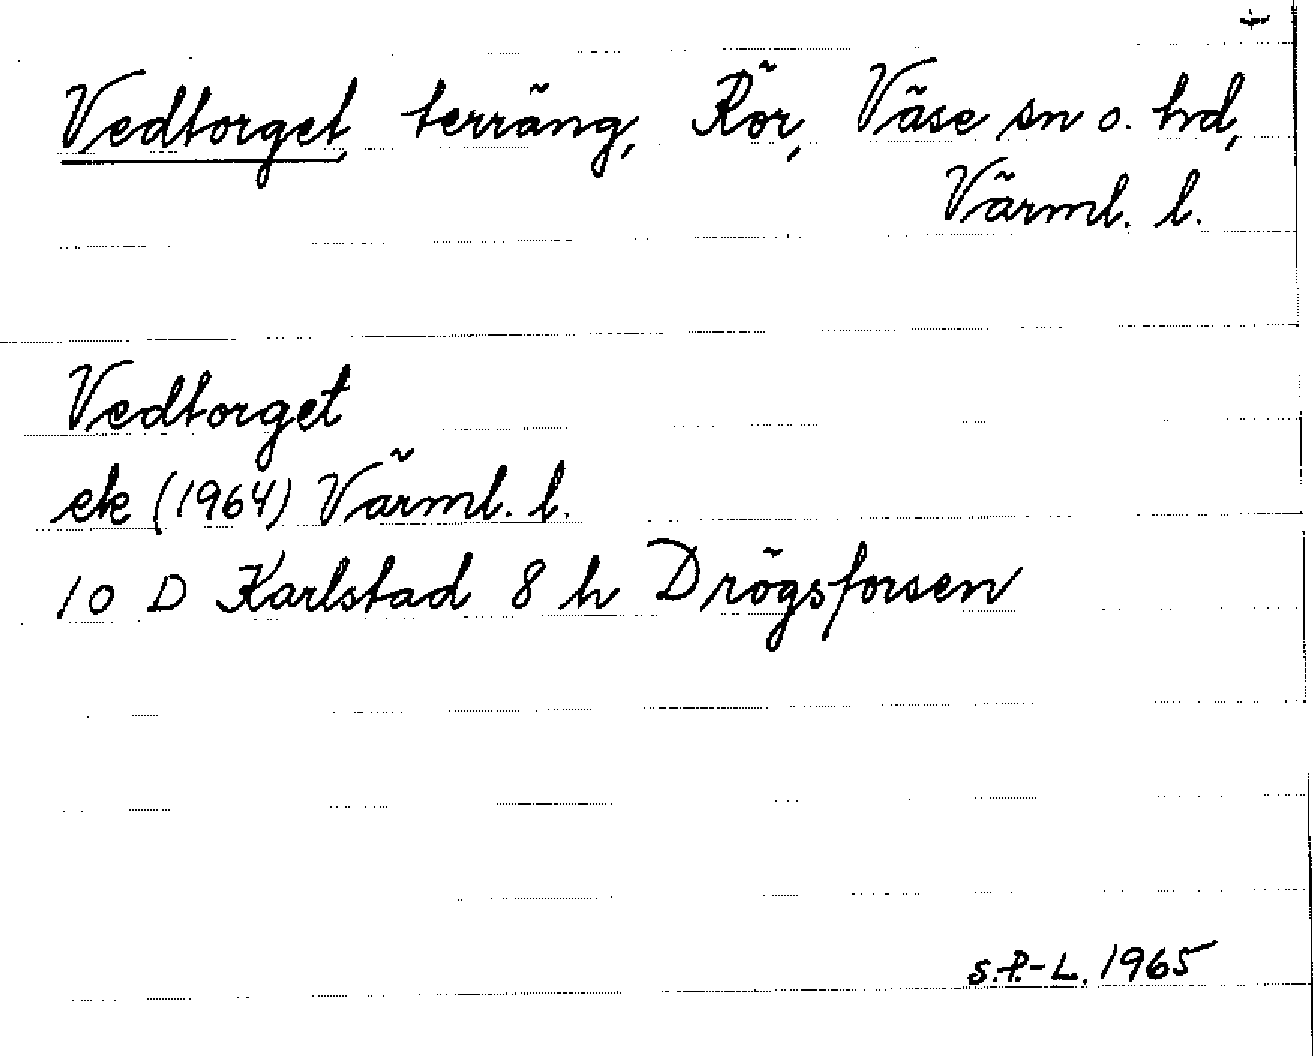 Vedtorget, terräng, Rör, Väse sn o. hd,
Värml. l.
Vedtorget
ek (1964) Värml. l.
10 D Karlstad 8 h Drögsforsen
S.P.-L. 1965